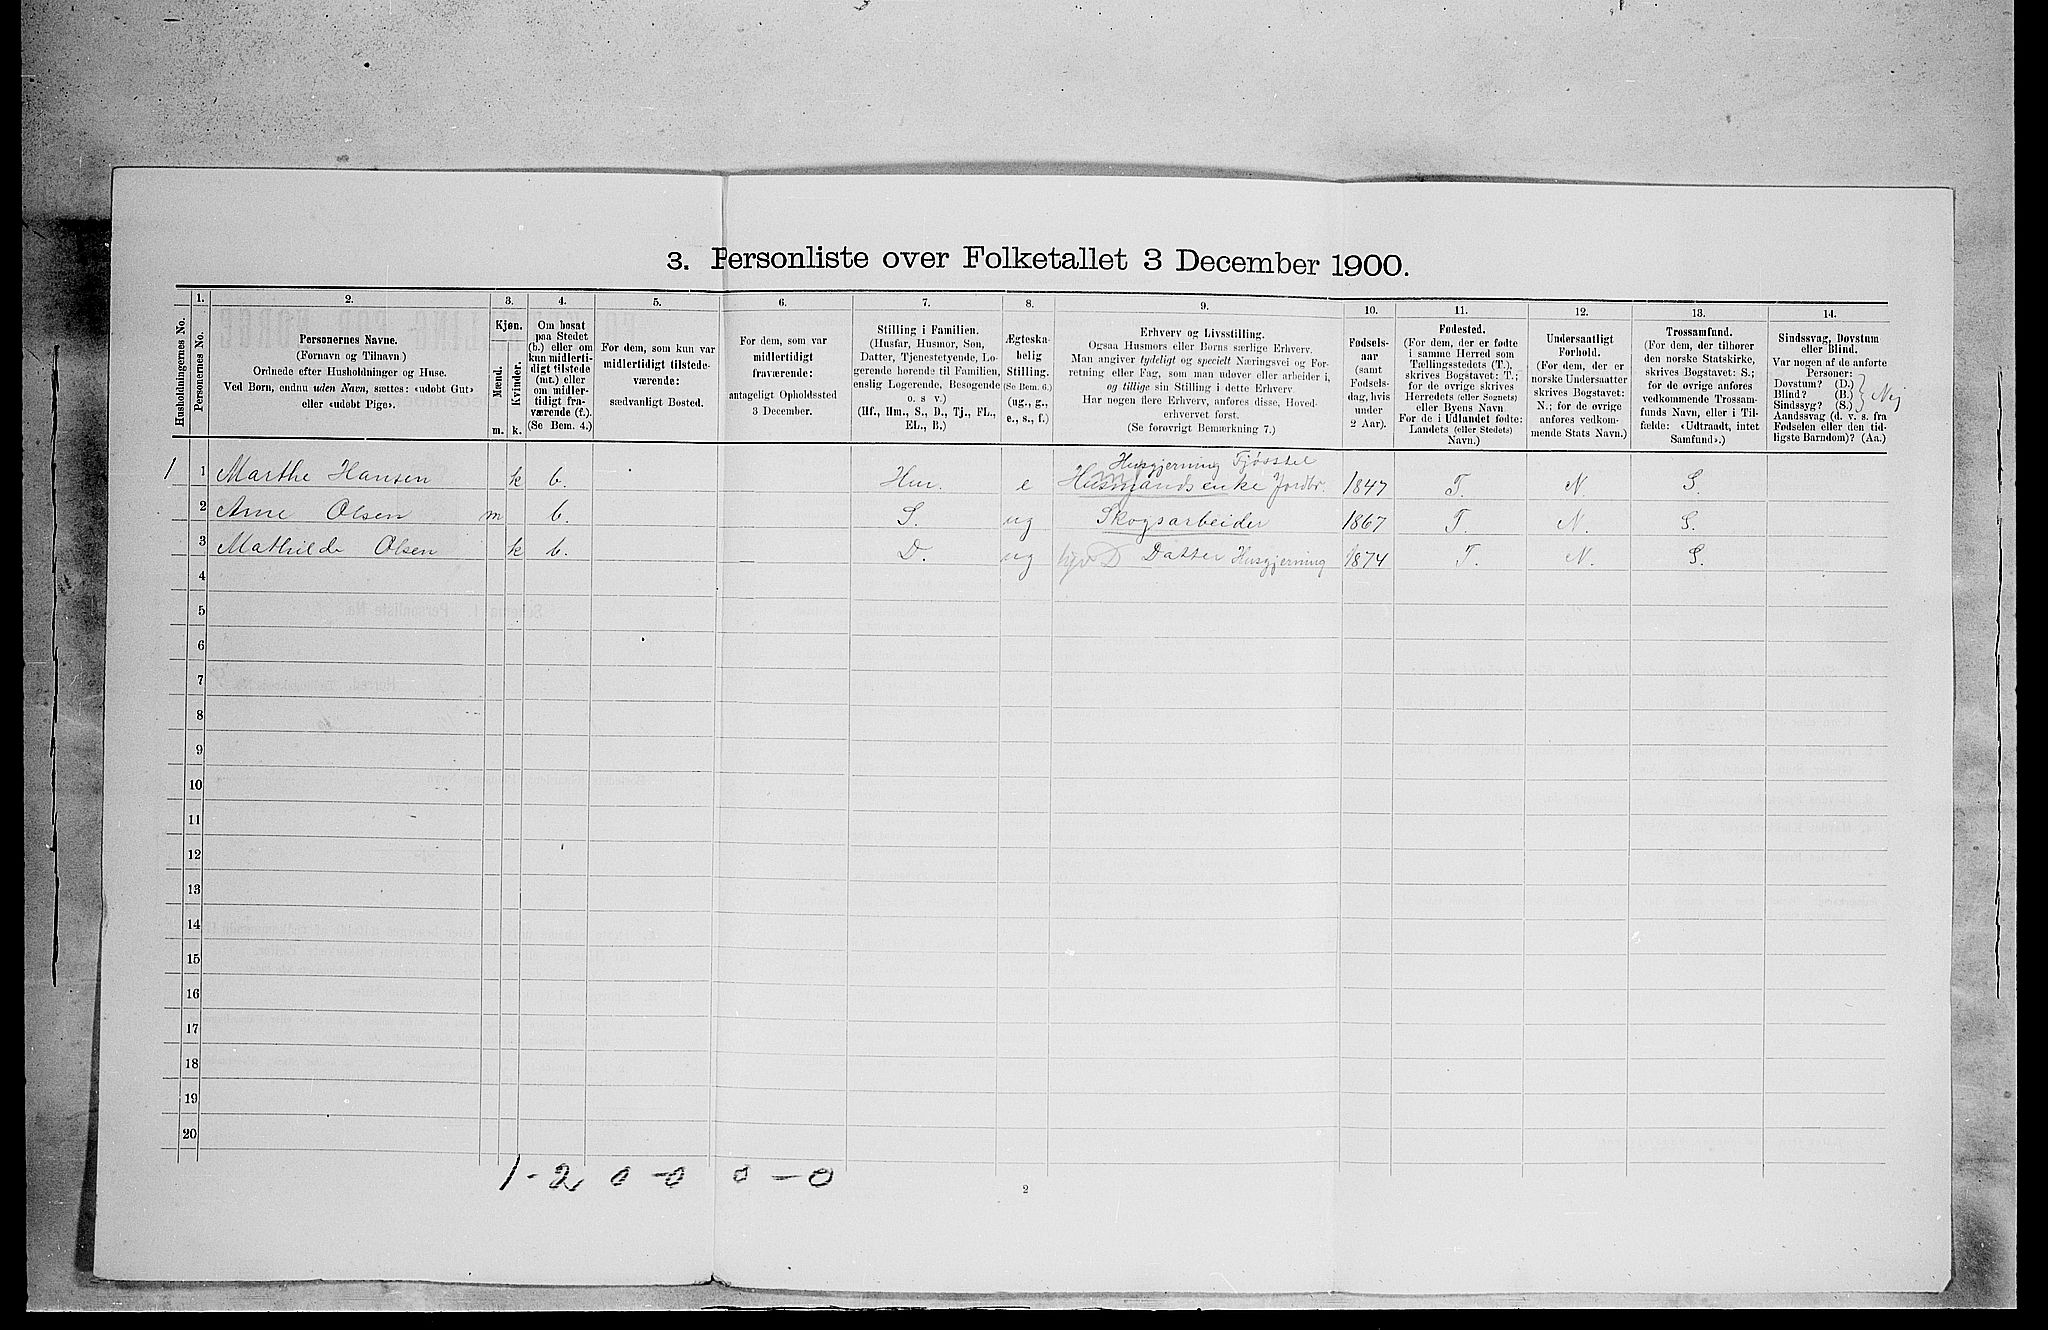 3. Personliste over Folketallet 3 December 1900.
1. 2. 3. 4. 5. 6. 7. 8. 9. 10. 11. 12. 13. 14.
Husholdningernes No.
Personernes No.
Personernes Navne.
(Fornavn og Tilnavn.)
Ordnede efter Husholdninger og Huse.
Ved Børn, endnu uden Navn, sættes: «udøbt Gut»
eller «udøbt Pige».
Kjøn.
Mænd.
Kvinder.
m. k.
Om bosat
paa Stedet
(b.) eller om
kun midlerti-
digt tilstede
(mt.) eller
om midler-
tidigt fra-
værende (f.).
(Se Bem. 4.)
For dem, som kun var
midlertidigt tilstede-
værende:
sædvanligt Bosted.
For dem, som var
midlertidigt
fraværende:
antageligt Opholdssted
3 December.
Stilling i Familien.
(Husfar, Husmor, Søn,
Datter, Tjenestetyende, Lo-
gerende hørende til Familien,
enslig Logerende, Besøgende
o. s v.)
(Hf., Hm., S., D., Tj., FL.,
EL., B.)
Ægteska-
belig
Stilling.
(Se Bem. 6.)
(ug., g.,
e., s., f.)
Erhverv og Livsstilling.
Ogsaa Husmors eller Børns særlige Erhverv.
Man angiver tydeligt og specielt Næringsvei og For-
retning eller Fag, som man udøver eller arbeider i,
og tillige sin Stilling i dette Erhverv
Har nogen flere Erhverv, anføres disse, Hoved-
erhvervet først.
(Se forøvrigt Bemærkning 7.)
Fødsels-
aar
(samt
Fødsels-
dag, hvis
under
2 Aar).
Fødested.
(For dem, der er fødte
i samme Herred som
Tællingsstedets (T.),
skrives Bogstavet: T.;
for de øvrige skrives
Herredets (eller Sognets)
eller Byens Navn
For de i Udlandet fødte:
Landets (eller Stedets)
Navn.)
Undersaatligt
Forhold.
(For dem, der er
norske Undersaatter
skrives Bogstavet:
N.; for de øvrige
anføres vedkom-
mende Stats Navn.)
Trossamfund.
(For dem, der tilhører
den norske Statskirke,
skrives Bogstavet: S.;
for de øvrige anføres
vedkommende Trossam-
funds Navn, eller i Til-
fælde: «Udtraadt, intet
Samfund».)
Sindssvag, Døvstum
eller Blind.
Var nogen af de anførte
Personer:
Døvstum? (D.)
Blind? (B.)
Sindssyg? (S.)
Aandssvag (d. v. s. fra
Fødselen eller den tid-
ligste Barndom)? (Aa.)
Nej
Husgjerning Fjøsstel
1 1 Marthe Hansen k b. Hm. e Husmandsenke Jordbr. 1847 T. N. S.
2 Arne Olsen m b. S. ug Skogsarbeider 1867 T. N. S.
3 Mathilde Olsen k b. D. ug Datter Husgjerning 1874 T. N. S.
4
5
6
7
8
9
10
11
12
13
14
15
16
17
18
19
20
1-2 0-0 0-0
2